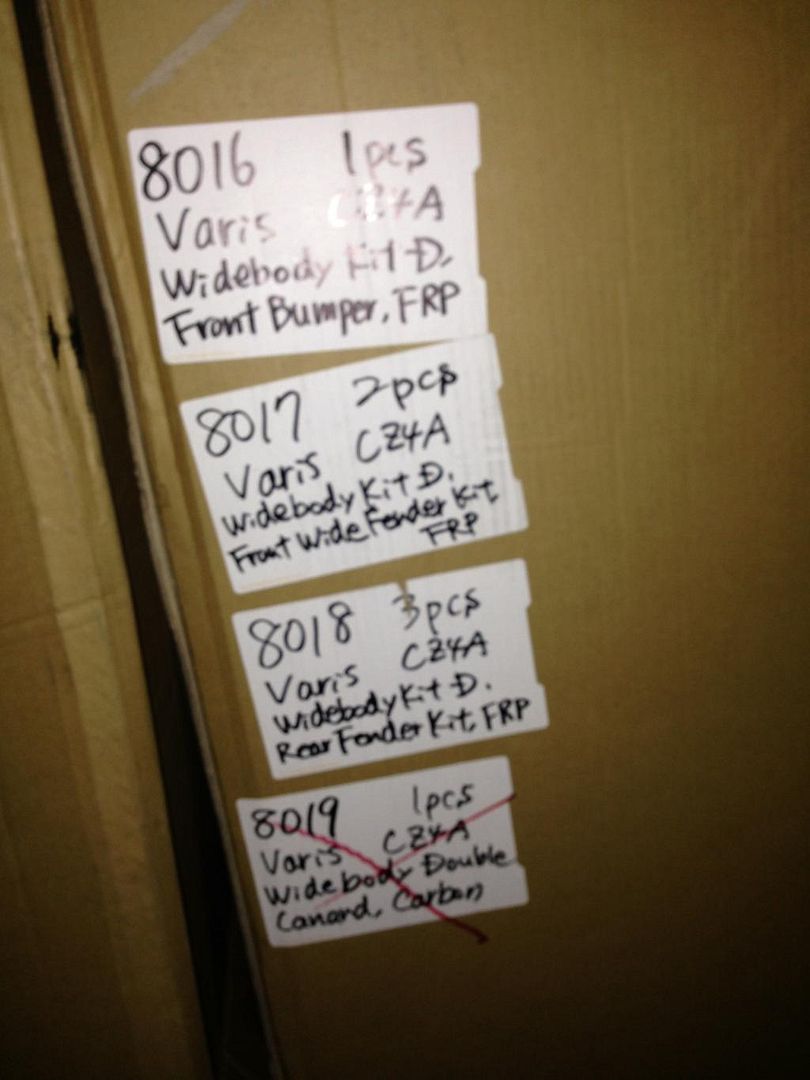 8016 1pcs
Varis CZ4A
Widebody Kit D,
Front Bumper, FRP
8017 2pcs
Varis CZ4A
Widebody Kit D.
Front Wide Fender Kit,
FRP
8018 3pcs
Varis CZ4A
Widebody Kit D.
Rear Fender Kit, FRP
8019 1pcs
Varis CZ4A
Widebody Double
Canard, Carbon